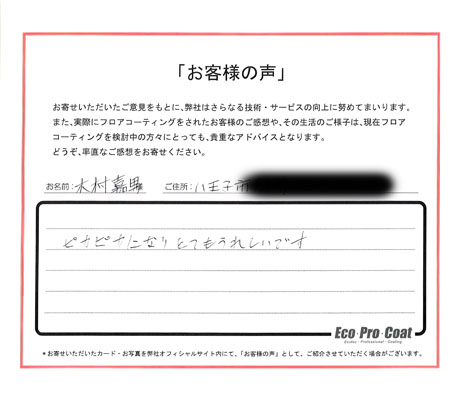 「お客様の声」
お寄せいただいたご意見をもとに、弊社はさらなる技術・サービスの向上に努めてまいります。
また、実際にフロアコーティングをされたお客様のご感想や、その生活のご様子は、現在フロア
コーティングを検討中の方々にとっても、貴重なアドバイスとなります。
どうぞ、率直なご感想をお寄せください。
お名前:木村嘉男様 ご住所:八王子市
ピカピカになりとてもうれしいです
Eco・Pro・Coat
Ecolex・Professional・Coating
*お寄せいただいたカード・お写真を弊社オフィシャルサイト内にて、「お客様の声」として、ご紹介させていただく場合がございます。